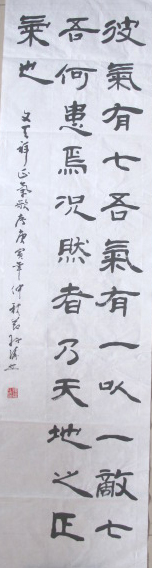 彼氣有七吾氣有一以一敵七
吾何患焉況然者乃天地之正
氣也
文天祥正氣歌序庚寅年仲秋